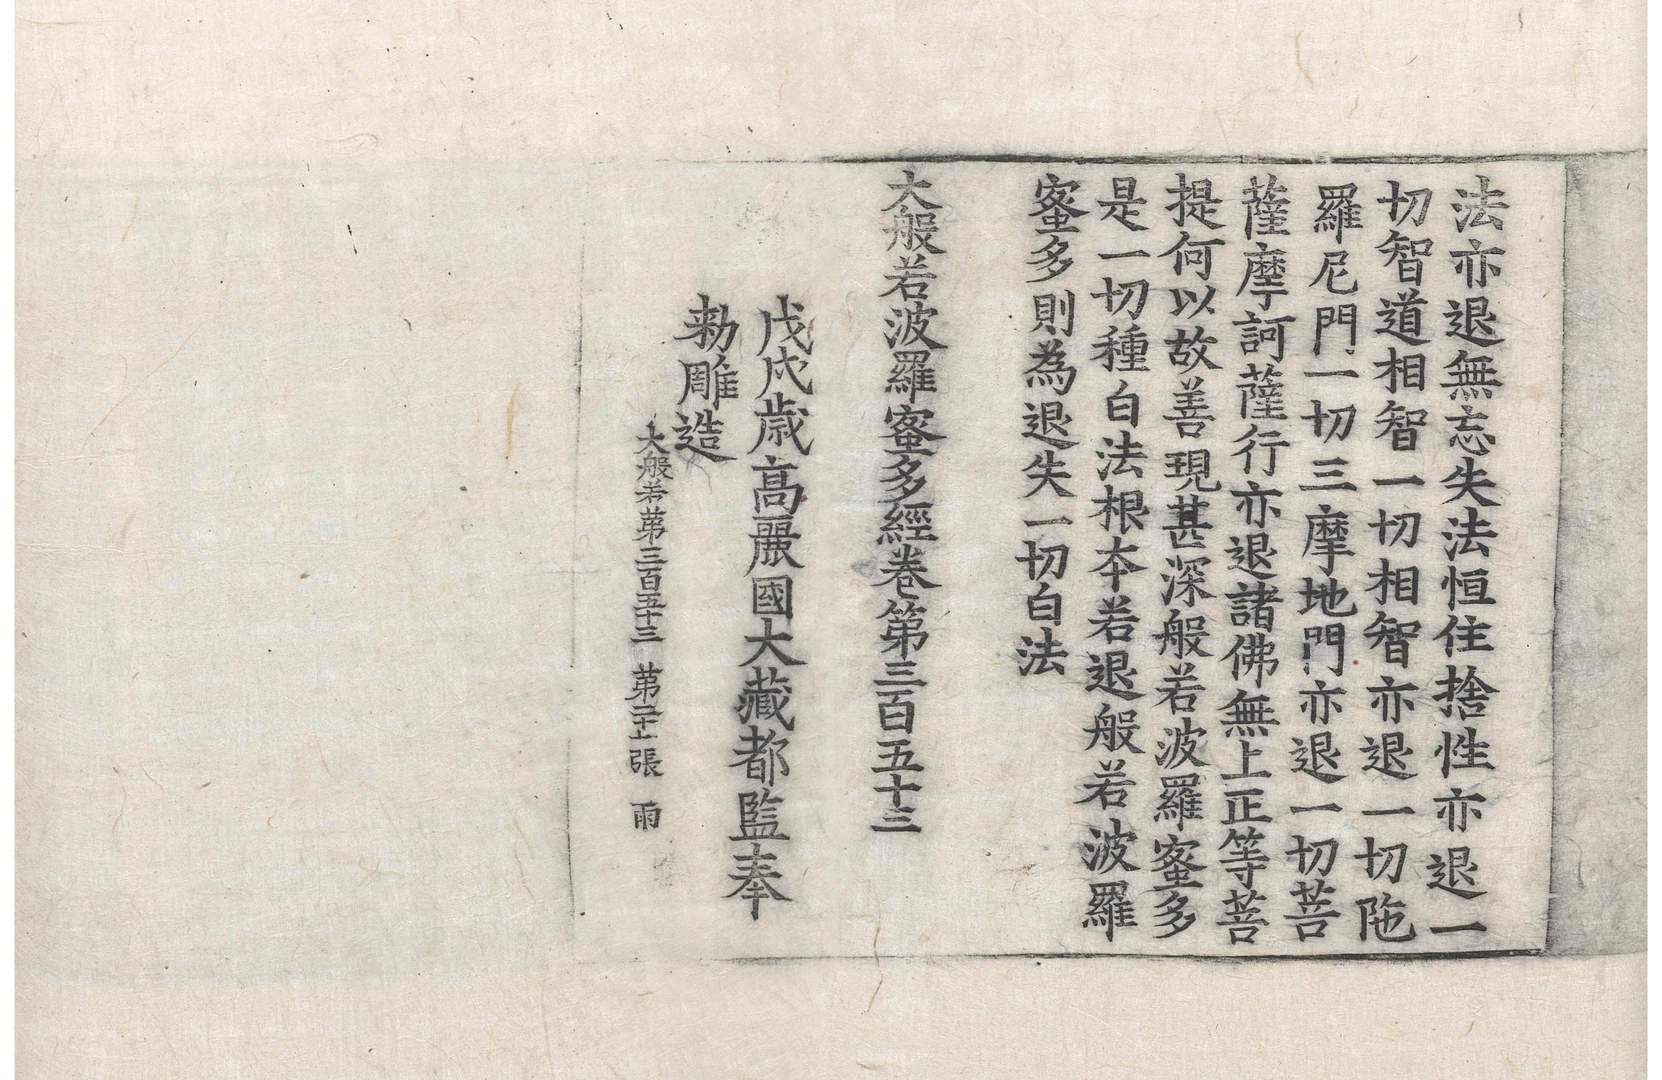 法亦退無忘失法恒住捨性亦退一
切智道相智一切相智亦退一切陁
羅尼門一切三摩地門亦退一切菩
薩摩訶薩行亦退諸佛無上正等菩
提何以故善現甚深般若波羅蜜多
是一切種白法根本若退般若波羅
蜜多則為退失一切白法
大般若波羅蜜多經卷第三百五十三
戊戌歲高麗國大藏都監奉
勑雕造
大般若第三百五十三　第二十一張　雨